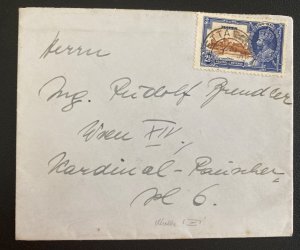 Herrn
Ing. Rudolf Brendler
Wien XIV,
Kardinal-Rauscher
Pl 6.